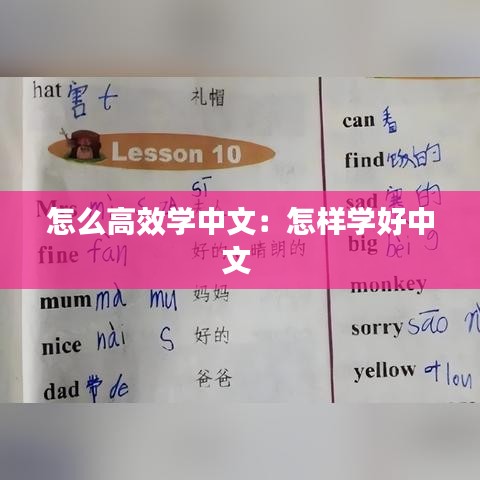 hat 害 t 礼帽
Lesson 10
怎么高效学中文：怎样学好中
文
fine fan 好的 晴朗的
mum mà mu 妈妈
nice nài S 好的
dad 带 de 爸爸
can 看
find 的
sad 塞 的
big bèi g
monkey
sorry sāo
yellow